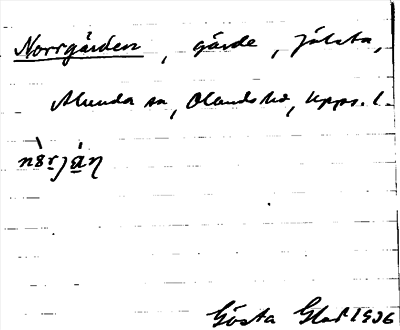 Norrgärden, gärde, Jälsta,
Almunda sn, Olands hd, Upps. l.
Gösta Glad 1936